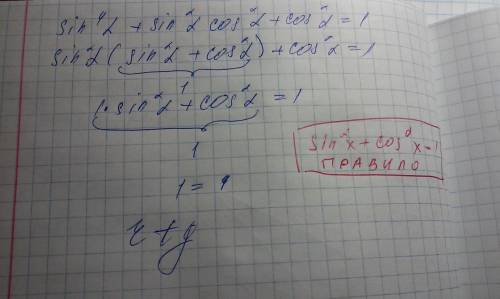 sin⁴α + sin²α cos²α + cos²α = 1
sin²α (sin²α + cos²α) + cos²α = 1
1
1·sin²α + cos²α = 1
1
sin²x + cos²x = 1
ПРАВИЛО
1 = 1
ч т д